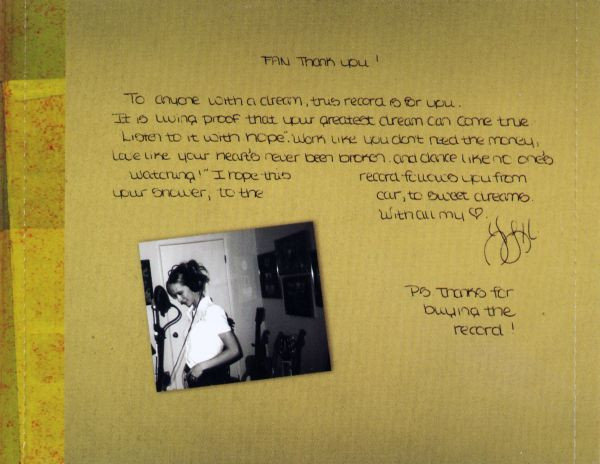 FAN Thank you!
To anyone with a dream, this record is for you.
It is living proof that your greatest dream can come true.
Listen to it with hope". Work like you dont need the money,
Love like your heart's never been broken. and dance like no one's
watching!" I hope this record follows you from
your shower, to the car, to sweet dreams.
With all my ♡.
PS Thanks for
buying the
record!